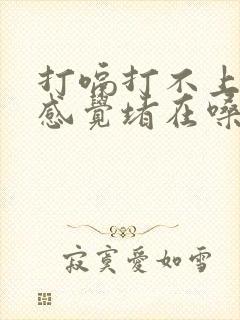 打嗝打不上
感覺堵在嗓
寂寞愛如雪